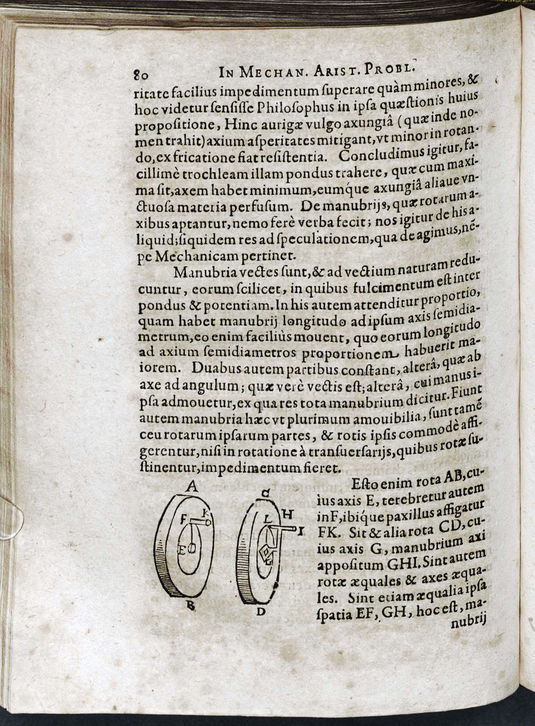 80 IN MECHAN. ARIST. PROBL.
ritate facilius impedimentum superare quàm minores, &
hoc videtur sensisse Philosophus in ipsa quæstionis huius
propositione, Hinc aurigæ vulgo axungiâ (quæ inde no-
men trahit) axium asperitates mitigant, vt minor in rotan-
do, ex fricatione fiat resistentia. Concludimus igitur, fa-
cillimè trochleam illam pondus trahere, quæ cum maxi-
ma sit, axem habet minimum, eumque axungiâ aliaue vn-
ctuosa materia perfusum. De manubrijs, quæ rotarum a-
xibus aptantur, nemo ferè verba fecit; nos igitur de his a-
liquid; siquidem res ad speculationem, qua de agimus, nẽ-
pe Mechanicam pertinet.
Manubria vectes sunt, & ad vectium naturam redu-
cuntur, eorum scilicet, in quibus fulcimentum est inter
pondus & potentiam. In his autem attenditur proportio,
quam habet manubrij longitudo ad ipsum axis semidia-
metrum, eo enim faciliùs mouent, quo eorum longitudo
ad axium semidiametros proportionem habuerit ma-
iorem. Duabus autem partibus constant, alterâ, quæ ab
axe ad angulum; quæ verè vectis est; alterâ, cui manus i-
psa admouetur, ex qua res tota manubrium dicitur. Fiunt
autem manubria hæc vt plurimum amouibilia, sunt tamẽ
ceu rotarum ipsarum partes, & rotis ipsis commodè affi-
gerentur, nisi in rotatione à transuersarijs, quibus rotæ su-
stinentur, impedimentum fieret.
Esto enim rota AB, cu-
ius axis E, terebretur autem
in F, ibique paxillus affigatur
FK. Sit & alia rota CD, cu-
ius axis G, manubrium axi
appositum GHI. Sint autem
rotæ æquales & axes æqua-
les. Sint etiam æqualia ipsa
spatia EF, GH, hoc est, ma-
nubrij
A
F
K
E
B
C
H
L
I
G
D